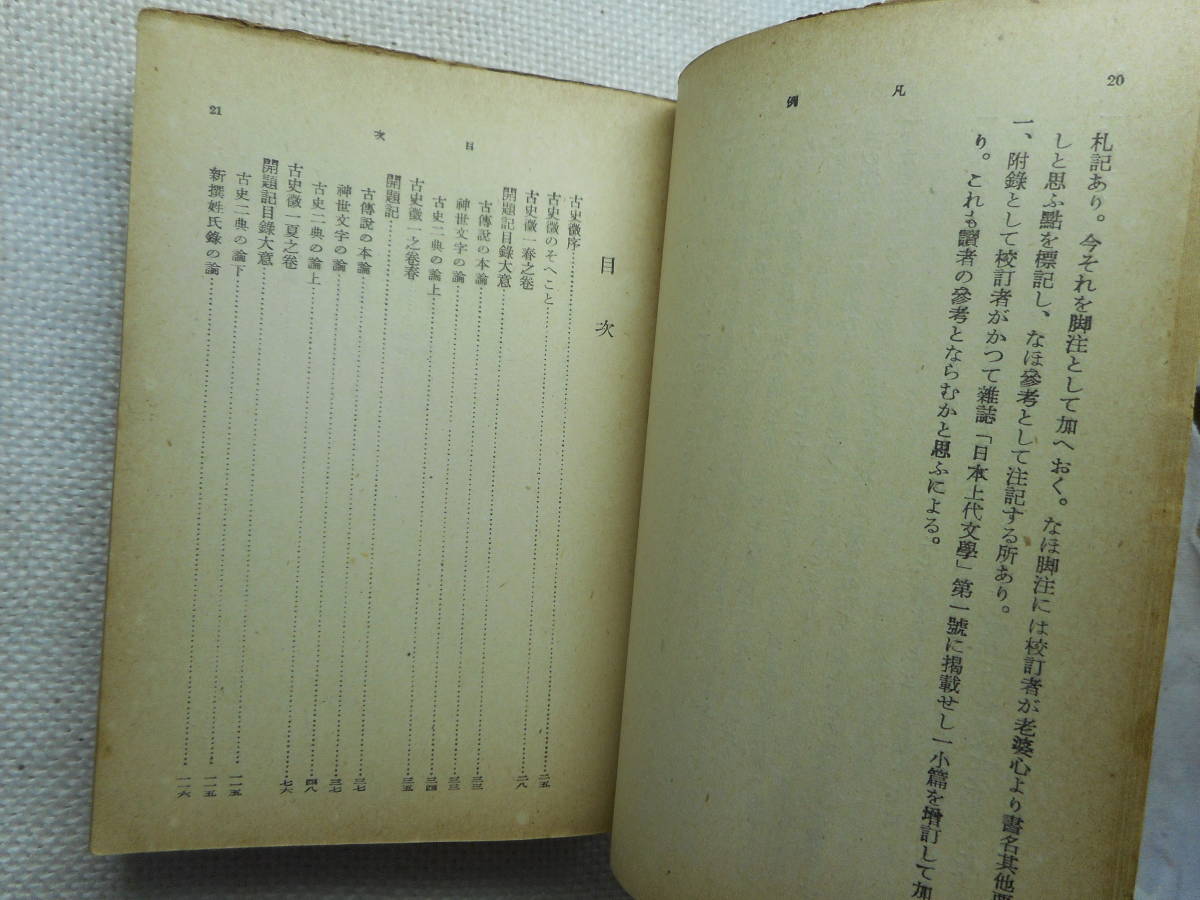 20
凡例
札記あり。今それを脚注として加へおく。なほ脚注には校訂者が老婆心より書名其他
しと思ふ點を標記し、なほ參考として注記する所あり。
一、附錄として校訂者がかつて雜誌「日本上代文學」第一號に揭載せし一小篇を增訂して加
り。これも讀者の參考とならむかと思ふによる。
21
目次
目次
古史徵序……二五
古史徵のそへこと……二八
古史徵一春之卷
開題記目錄大意……三三
古傳說の本論……三三
神世文字の論……三四
古史二典の論上……三五
古史徵一之卷春
開題記……三七
古傳說の本論……三七
神世文字の論……四八
古史二典の論上……七六
古史徵一夏之卷
開題記目錄大意……一一五
古史二典の論下……一一五
新撰姓氏錄の論……一一六